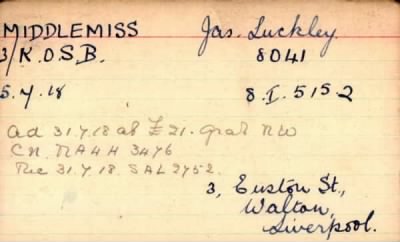 MIDDLEMISS Jas. Luckley
3/K.O.S.B. 8041
5.4.18 8.I.515-2
ad 31.7.18 at £21. grat NW
CR. RA4H 3476
Rec 31.7.18. SAL 2752.
3, Euston St.,
Walton,
Liverpool.